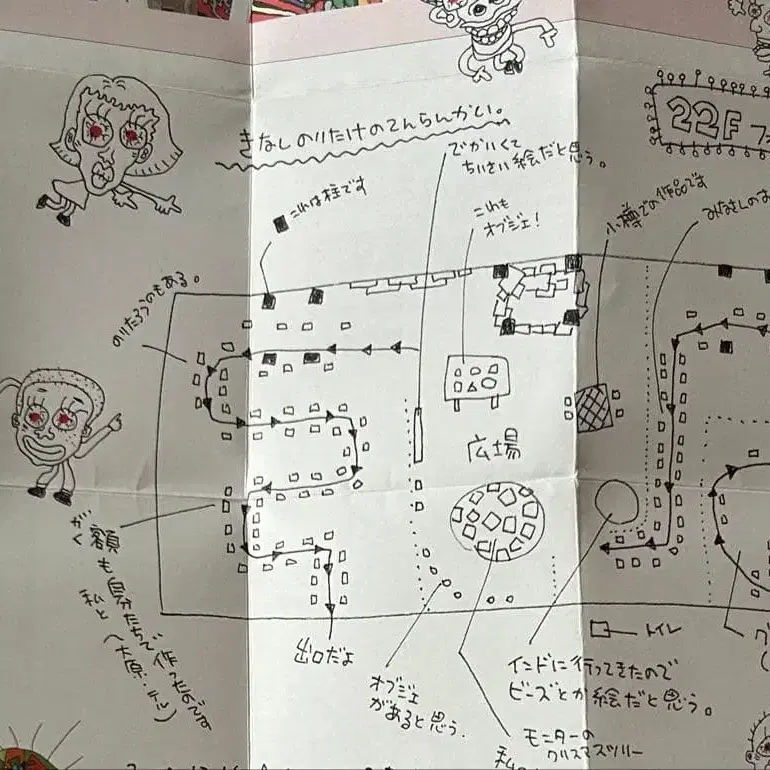 きなしのりたけのてんらんかい。
22F
でかくて
ちいさい絵だと思う。
これは柱です
これも
オブジェ!
小樽での作品です
のりたろうのもある。
広場
額も自分たちで作ったんだよな
がく
私と
出口だよ
オブジェ
があると思う.
トイレ
インドに行ってきたので
ビーズとか絵だと思う。
モニターの
クリスマスツリー
私の